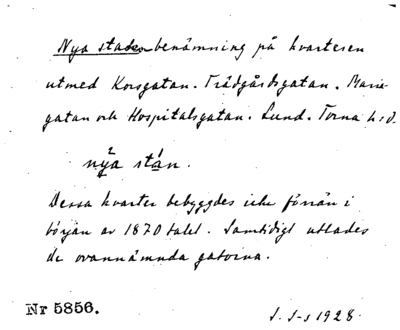 Nya staden benämning på kvarteren
utmed Korsgatan. Trädgårdsgatan. Marie-
gatan och Hospitalsgatan. Lund. Torna h:d.
nỹa stán.
Dessa kvarter bebyggdes icke förrän i
början av 1870 talet. Samtidigt utlades
de ovannämnda gatorna.
Nr 5856.
S. S-s 1928.